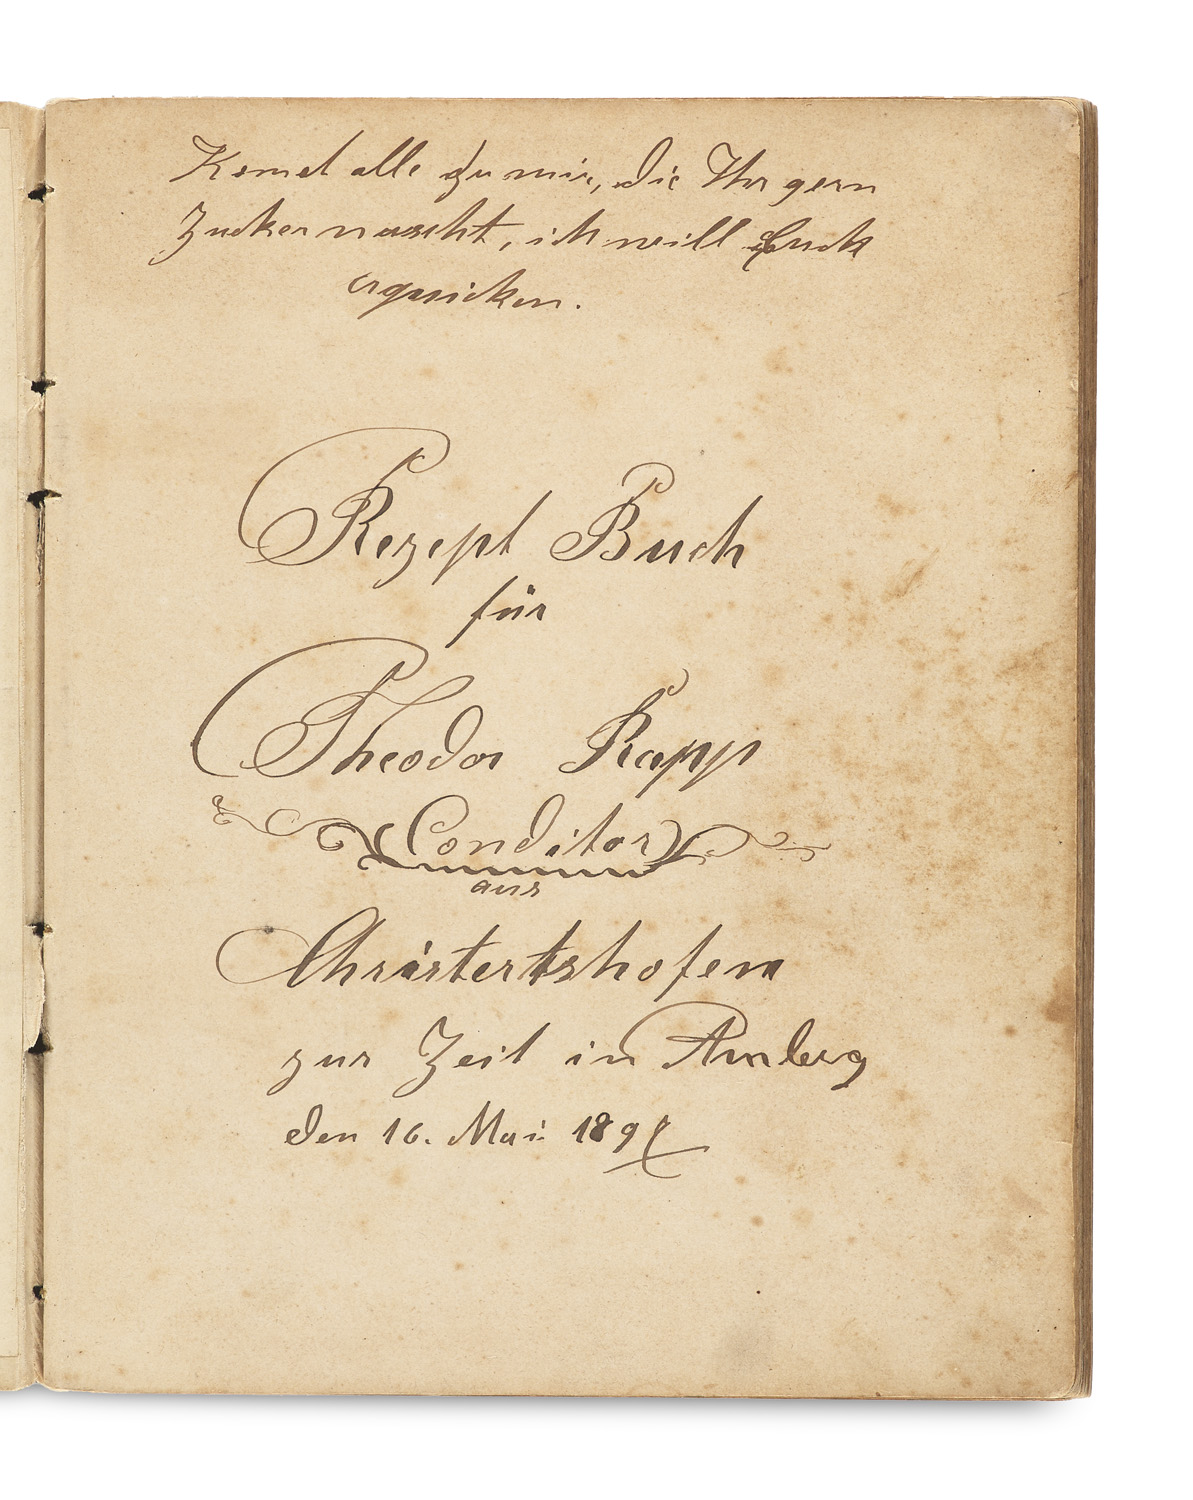 Komet alle zu mir, die Ihr gern
Zucker nascht, ich will Euch
erquicken.
Rezept Buch
für
Theodor Rapp
Conditor
aus
Christertshofen
zur Zeit in Amberg
den 16. Mai